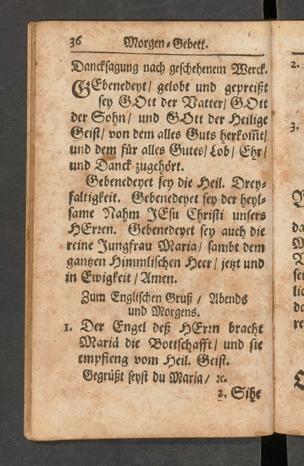 36 Morgen-Gebett.
Dancksagung nach geschehenem Werck.
GEbenedeyt/ gelobt und gepreißt
sey GOtt der Vatter/ GOtt
der Sohn/ und GOtt der Heilige
Geist/ von dem alles Guts herkom̃t/
und dem für alles Gutes/ Lob/ Ehr/
und Danck zugehört.
Gebenedeyet sey die Heil. Drey-
faltigkeit. Gebenedeyet sey der heyl-
same Nahm JEsu Christi unsers
HErren. Gebenedeyet sey auch die
reine Jungfrau Maria/ sambt dem
gantzen Himmlischen Heer/ jetzt und
in Ewigkeit/ Amen.
Zum Englischen Gruß/ Abends
und Morgens.
1. Der Engel deß HEr:n bracht
Mariä die Bottschafft/ und sie
empfieng vom Heil. Geist.
Gegrüßt seyst du Maria/ ꝛc.
2. Sihe